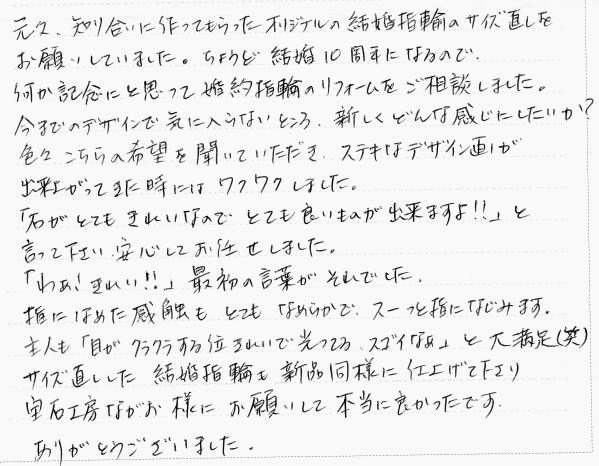 元々、知り合いに作ってもらったオリジナルの結婚指輪のサイズ直しを
お願いしていました。ちょうど結婚10周年になるので、
何か記念にと思って婚約指輪のリフォームをご相談しました。
今までのデザインで気に入らないところ、新しくどんな感じにしたいか?
色々こちらの希望を聞いていただき、ステキなデザイン画が
出来上がってきた時にはワクワクしました。
「石がとてもきれいなので とても良いものが出来ますよ!!」と
言って下さい、安心してお任せしました。
「わぁ!きれい!!」最初の言葉がそれでした。
指にはめた感触もとてもなめらかで、スーっと指になじみます。
主人も「目がクラクラする位きれいで光ってる、スゴイなぁ」と大満足(笑)
サイズ直しした 結婚指輪も新品同様に仕上げて下さり
宝石工房ながお様にお願いして本当に良かったです。
ありがとうございました。